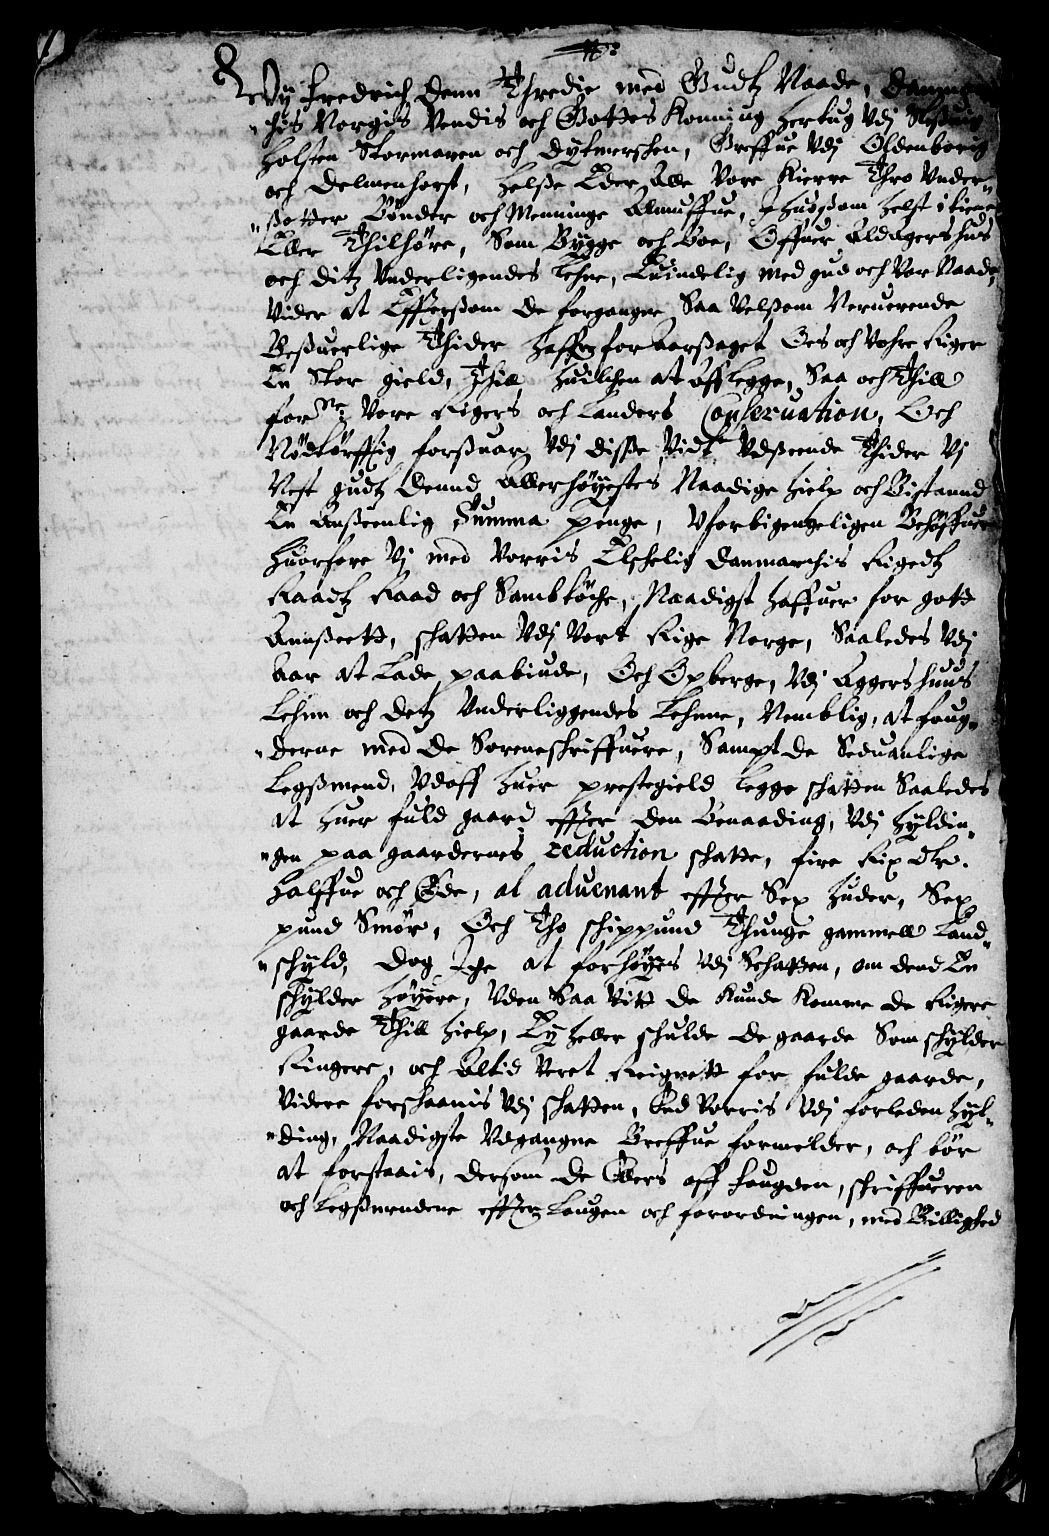 Wy Fredrich Denn Thredie med Gudtz Naade, Danmar¬
"chis Norgis Vendis och Gottes Konning Hertug Vdj Sleßuig
Holsten Stormaren och Dytmerschen, Greffue Vdj Oldenborig
och Delmenhorst, Helße Eder Alle Vore Kierre Thro Vnder¬
"ßotter Bönder och Menninge Almuffue, Ihuosom Helst i tiene
Eller Thilhöre, Som Bygge och Boe, Offuer Aldagershus
och ditz Vnderligendes Lehne, Euindelig med gud och Vor Naade,
Vider at Effterßom de forganger Saa Velßom Neruerende
Beßuerlige Thider Haffuer foraarßaget Oes och Vohre Riger
En Stor gield, Thill Huilchen at Afflegge, Saa och Thill
forne: Vore Rigers och Landers Conseruation, Och
Nödtörfftig forßuar Vdj disse Vidt Vdßeende Thider Vj
Nest gudtz Dennd Allerhöyestes Naadige Hielp och Bistannd
En Anßeenlig Summa Penge, Vforbigengeligen Behöffuer
Huorfore Vj med Vorris Elschelig Danmarchis Rigedtz
Raadtz Raad och Sambtöche, Naadigst Haffuer for gott
Annßeett, schatten Vdj Vort Rige Norge, Saaledes Vdj
Aar at Lade paabiude, Och Opberge, Vdj Aggershuus
Lehnn och detz Vnderliggendes Lehnne, Nemblig, at foug¬
"derne med de Soreneschriffuere, Sampt de Seduanlige
Legßmend, Vdaff Huer prestegield Legge schatten Saaledes
at Huer fuld gaard effter den Benaading, Vdj Hyldin¬
"gen paa gaardernes reduction schatte, fire Rix dlr.
Halffue och Öde, al aduenant effter Sex Huder, Sex
pund Smör, Och Tho schippund Thunge gammell Land¬
"schyld, dog Iche at forhöyes Vdj Schatten, om dend En
schylder Höyere, Vden Saa Vitt de Kunde Komme de Ringere
gaarde Thill Hielp, Ey Heller schulde de gaarde Som schylder
Ringere, och Altid Veret Reignett for fulde gaarde,
Videre forschaanis Vdj schatten, End Vorris Vdj forleden Hyl¬
"ding, Naadigste Vdgangne Breffue formelder, och bör
at forstaais, dersom de Ellers aff fougden, schriffueren
och Legßmendene effter Lougen och forordningen, med Billighed